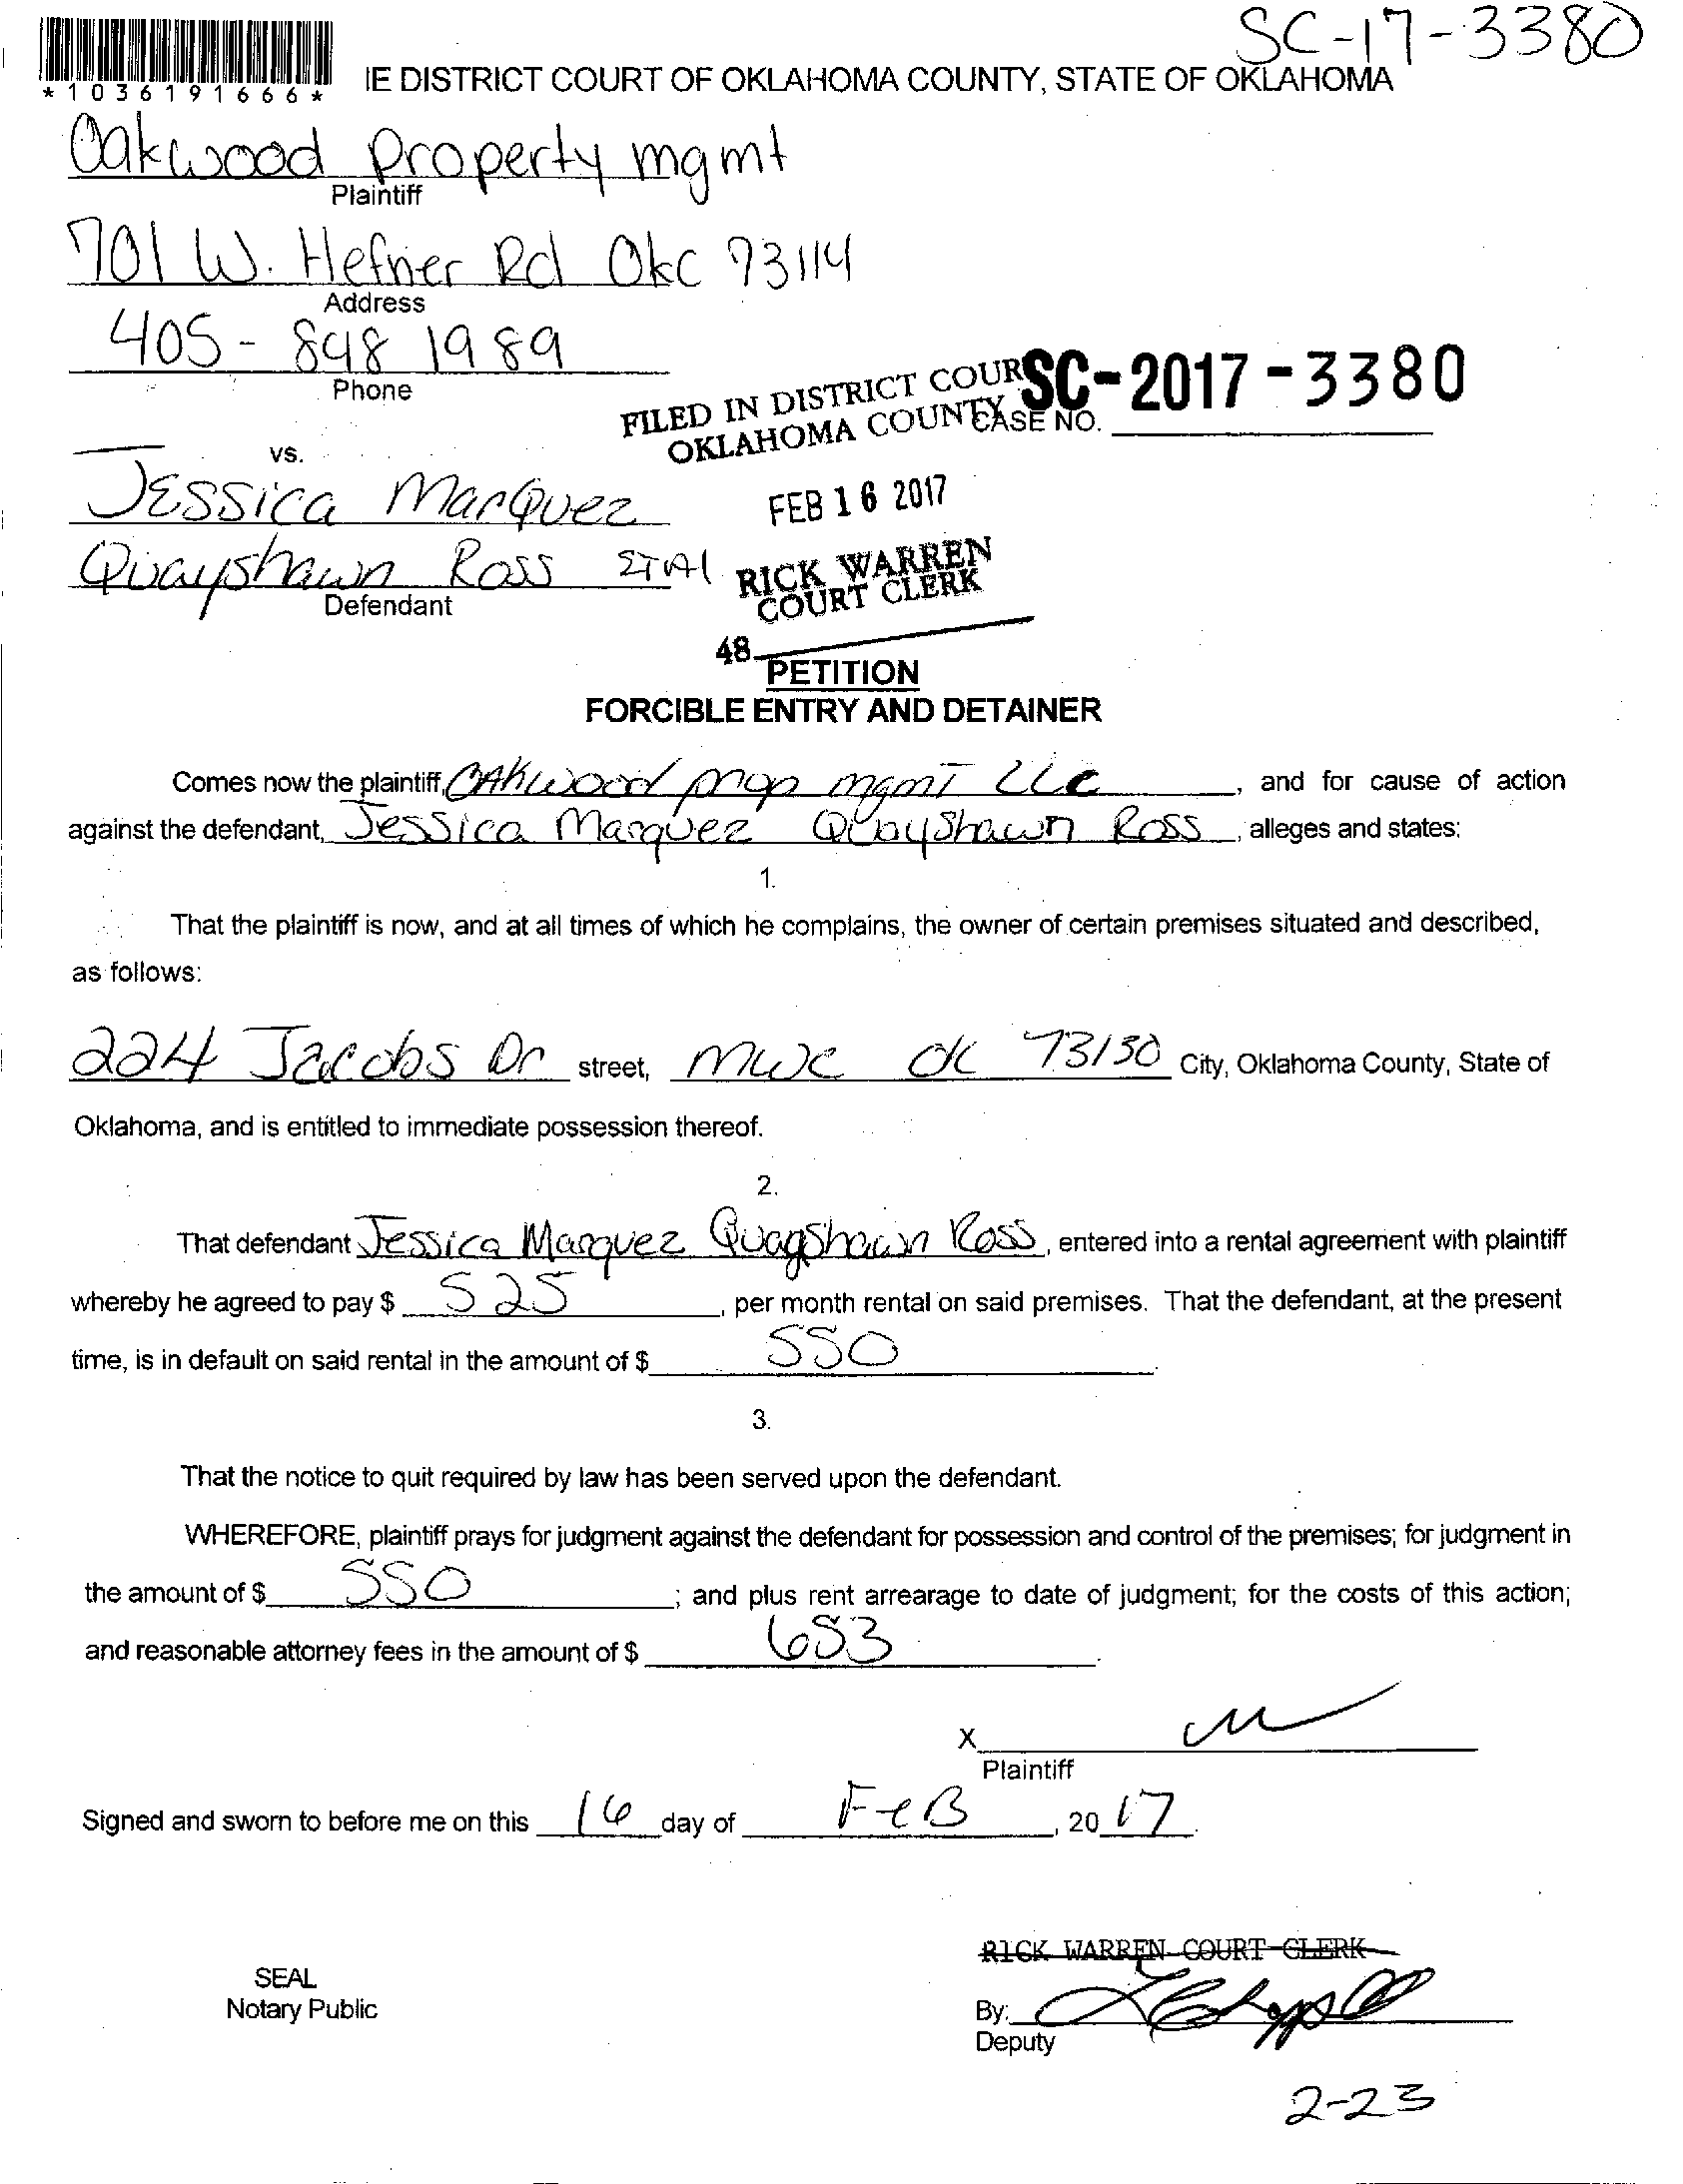 SC-17-3380
*1036191666*
IE DISTRICT COURT OF OKLAHOMA COUNTY, STATE OF OKLAHOMA
Oakwood Property mgmt
Plaintiff
701 W. Hefner Rd Okc 73114
Address
405- 848 1989
Phone
FILED IN DISTRICT COUR
OKLAHOMA COUNTY
SC-2017-3380
CASE NO.
vs.
FEB 16 2017
Jessica Marquez
Quayshawn Ross ETAl
Defendant
RICK WARREN
COURT CLERK
48
PETITION
FORCIBLE ENTRY AND DETAINER
Comes now the plaintiff, OAkwood prop mgmt LLC, and for cause of action
against the defendant, Jessica Marquez Quayshawn Ross, alleges and states:
1.
That the plaintiff is now, and at all times of which he complains, the owner of certain premises situated and described,
as follows:
224 Jacobs Dr street, mwc ok 73130 City, Oklahoma County, State of
Oklahoma, and is entitled to immediate possession thereof.
2.
That defendant Jessica Marquez Quagshawn Ross, entered into a rental agreement with plaintiff
whereby he agreed to pay $ 525, per month rental on said premises. That the defendant, at the present
time, is in default on said rental in the amount of $ 550.
3.
That the notice to quit required by law has been served upon the defendant.
WHEREFORE, plaintiff prays for judgment against the defendant for possession and control of the premises; for judgment in
the amount of $ 550; and plus rent arrearage to date of judgment; for the costs of this action;
and reasonable attorney fees in the amount of $ 653.
X
Plaintiff
Signed and sworn to before me on this 16 day of FeB, 2017.
RICK WARREN COURT CLERK
SEAL
Notary Public
By:
Deputy
2-23